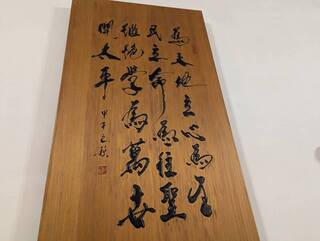 為天地立心為生
民立命為往聖
繼絕學為萬世
開太平 甲子之秋